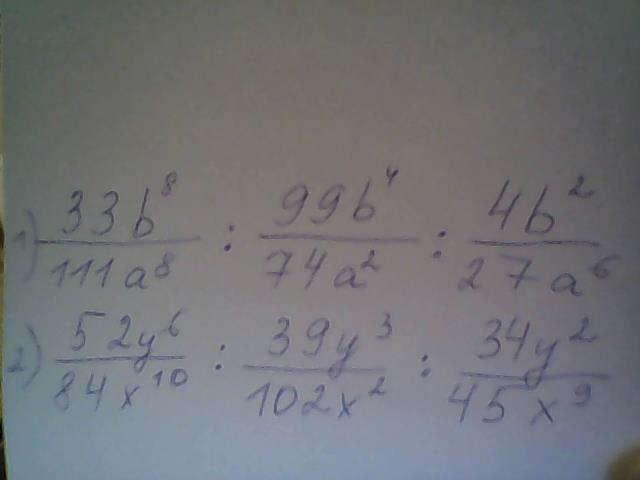 1) 33b⁸/111a⁸ : 99b⁴/74a² : 4b²/27a⁶
2) 52y⁶/84x¹⁰ : 39y³/102x² : 34y²/45x⁹